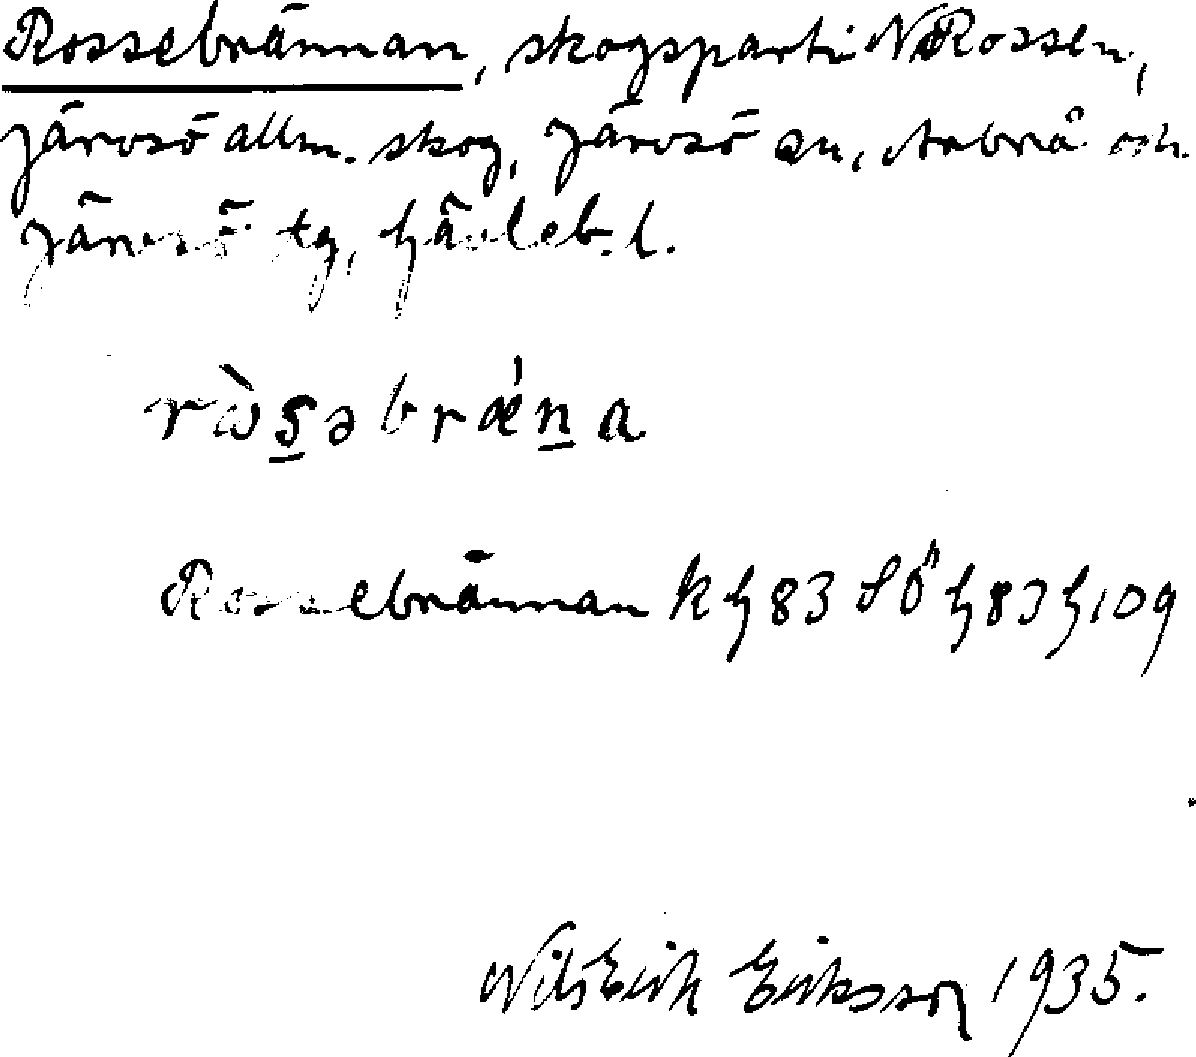 Rossebrännan, skogsparti NöRossen,
Järvsö allm. skog, Järvsö sn, Arbrå och
Järvsö tg, Gävleb. l.
rὼs̲əbrǽn̲a
Rossebrännan k G83 SÖ G83 G109
Nils Erik Eriksson 1935.